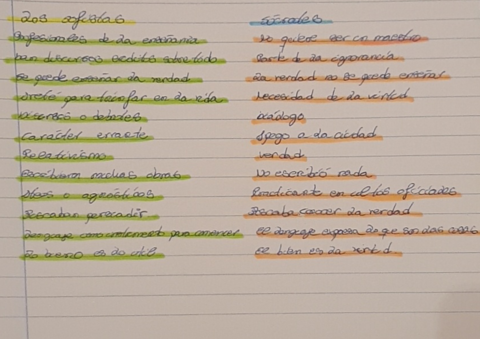 Los sofistas Sócrates
Profesionales de la enseñanza No quiere ser un maestro
Dan discursos sobre todo Parte de la ignorancia
Se puede enseñar la verdad La verdad no se puede enseñar
Areté para triunfar en la vida Necesidad de la virtud
Discurso o debates Diálogo
Carácter errante Apego a la ciudad
Relativismo Verdad
Escribieron muchas obras No escribió nada
Ateos o agnósticos Practicante en cultos oficiales
Buscaban persuadir Buscaba conocer la verdad
Lenguaje como instrumento para convencer El lenguaje expresa lo que son las cosas
Lo bueno es lo útil El bien es la virtud